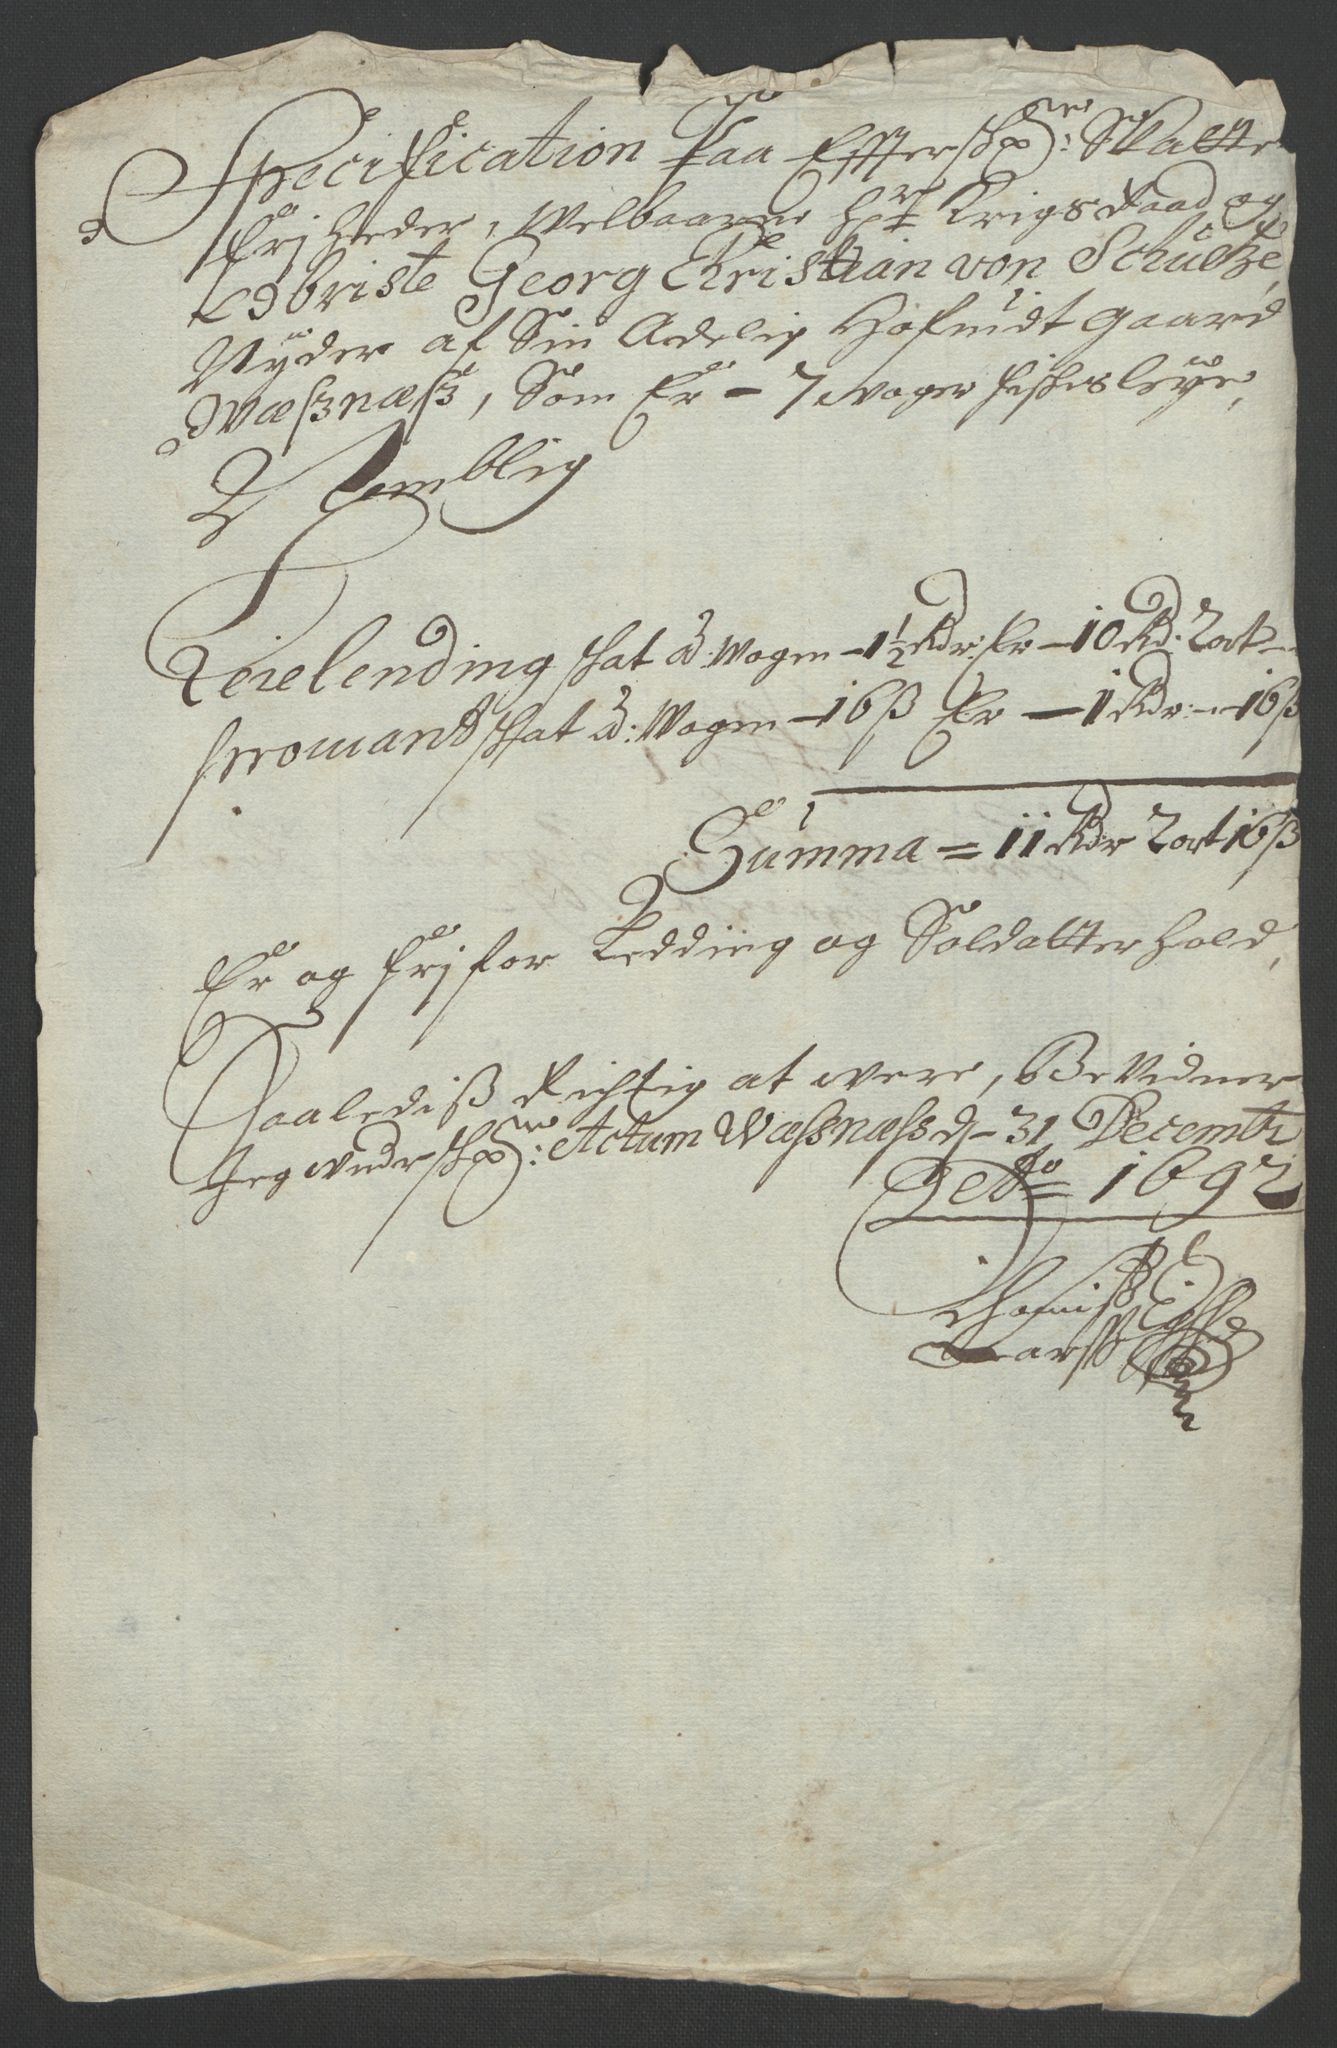 Specification Paa Effterschr: Skatte
Frjheder, Welbaarne Hr: Krigs Raad og
Obriste Georg Christian von Schultze,
Nyder af Sin Adelig Hofuidt gaard
Wæssnæss, Som Er – 7 woger fiskes leye,
Nemblig
Leielending skat ad: Wogen – 1½ Rdr: Er – 10 Rd: 2 ort –
Prowiant skat ad: Wogen – 16 ß Er – 1 Rdr: – 16 ß
Summa = 11 Rdr 2 ort 16 ß
Er og frj for Ledding og Soldatter hold,
Saalediß Rigtig at were, Bevidner
Jeg underschr: Actum Wæssnæss d – 31 Decembr
Ao 1692
Larss